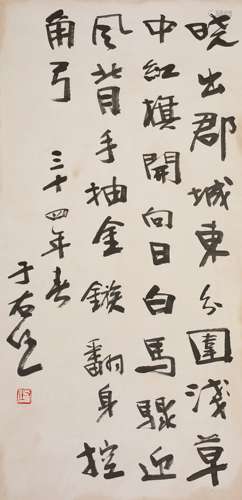 曉出郡城東分圍淺草
中紅旗開向日白馬驟迎
風背手抽金鏃翻身控
角弓 三十四年春
于右任